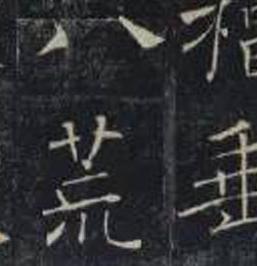 垂
八荒